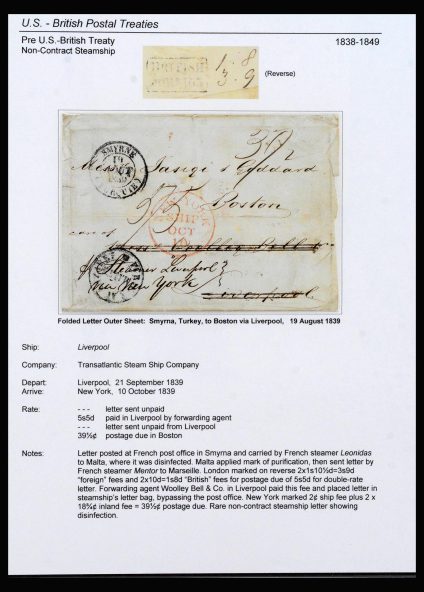 U.S. - British Postal Treaties
Pre U.S.-British Treaty 1838-1849
Non-Contract Steamship
BRITISH
FOREIGN
1:8
3:9
(Reverse)
SMYRNE
19
AOUT
39 1/2
Messrs Iasigi & Goddard
Boston
5/5
NEW YORK
SHIP
OCT
10
care of
pr Steamer Liverpool
via New York
Liverpool
Folded Letter Outer Sheet: Smyrna, Turkey, to Boston via Liverpool, 19 August 1839
Ship: Liverpool
Company: Transatlantic Steam Ship Company
Depart: Liverpool, 21 September 1839
Arrive: New York, 10 October 1839
Rate: - - - letter sent unpaid
5s5d paid in Liverpool by forwarding agent
- - - letter sent unpaid from Liverpool
39½¢ postage due in Boston
Notes: Letter posted at French post office in Smyrna and carried by French steamer Leonidas
to Malta, where it was disinfected. Malta applied mark of purification, then sent letter by
French steamer Mentor to Marseille. London marked on reverse 2x1s10½d=3s9d
"foreign" fees and 2x10d=1s8d "British" fees for postage due of 5s5d for double-rate
letter. Forwarding agent Woolley Bell & Co. in Liverpool paid this fee and placed letter in
steamship's letter bag, bypassing the post office. New York marked 2¢ ship fee plus 2 x
18¾¢ inland fee = 39½¢ postage due. Rare non-contract steamship letter showing
disinfection.